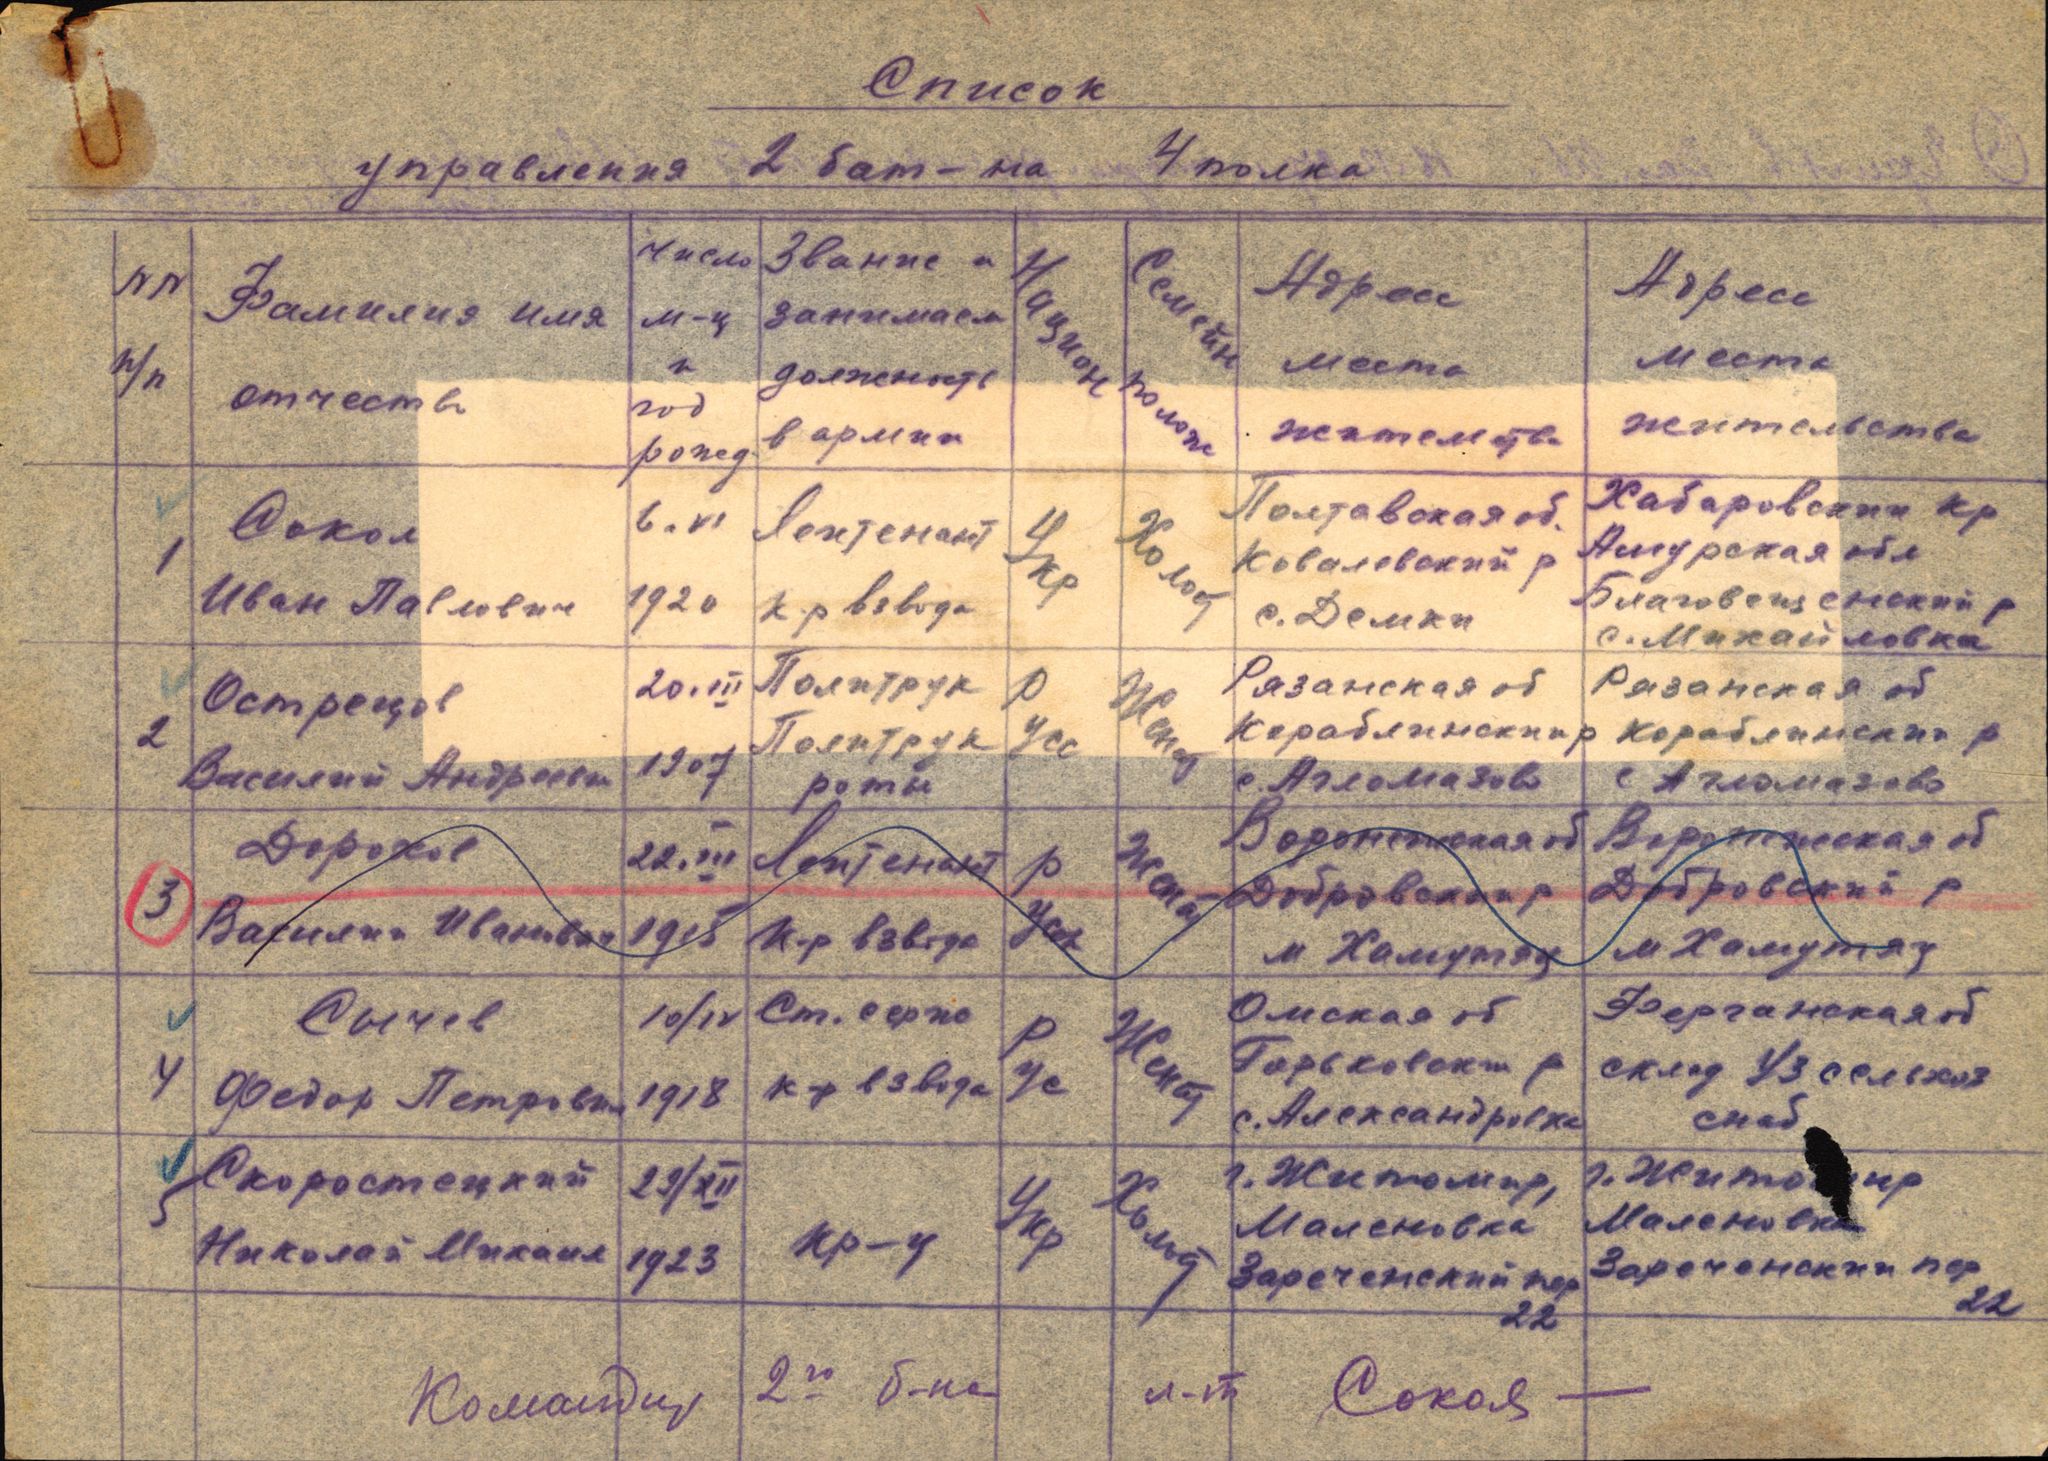 Список
управления 2 бат-на 4 полка
NN п/п
Фамилия имя отчество
Число м-ц и год рожд
Звание и занимаем должность в армии
Национ
Семейн полож
Адрес места жительства
Адрес места жительства
1
Сокол
Иван Павлович
6.VI
1920
Лейтенант
к-р взвода
Укр
Холост
Полтавская об.
Ковалевский р
с. Демки
Хабаровский кр
Амурская обл
Благовещенский р
с. Михайловка
2
Острецов
Василий Андреевич
20.III
1907
Политрук
Политрук
роты
Р
усс
Женат
Рязанская об
Кораблинский р
с. Агломазово
Рязанская об
Кораблинский р
с Агломазово
3
Дорохов
Василий Иванович
22.III
1915
Лейтенант
К-р взвода
р
усск
Женат
Воронежская об
Добровский р
м Хамутяц
Воронежская об
Добровский р
м Хамутяц
4
Сычев
Федор Петрович
10/IV
1918
Ст. серж
к-р взвода
Р
ус
Женат
Омская об
Горьковский р
с. Александровка
Ферганская об
склад Узсельхоз
снаб
5
Скоростецкий
Николай Михаил
29/XII
1923
Кр-ц
Укр
Холост
г. Житомир,
Маленовка
Зареченский пер
22
г. Житомир
Маленовка
Зареченский пер
22
Командир 2го б-на л-т Сокол